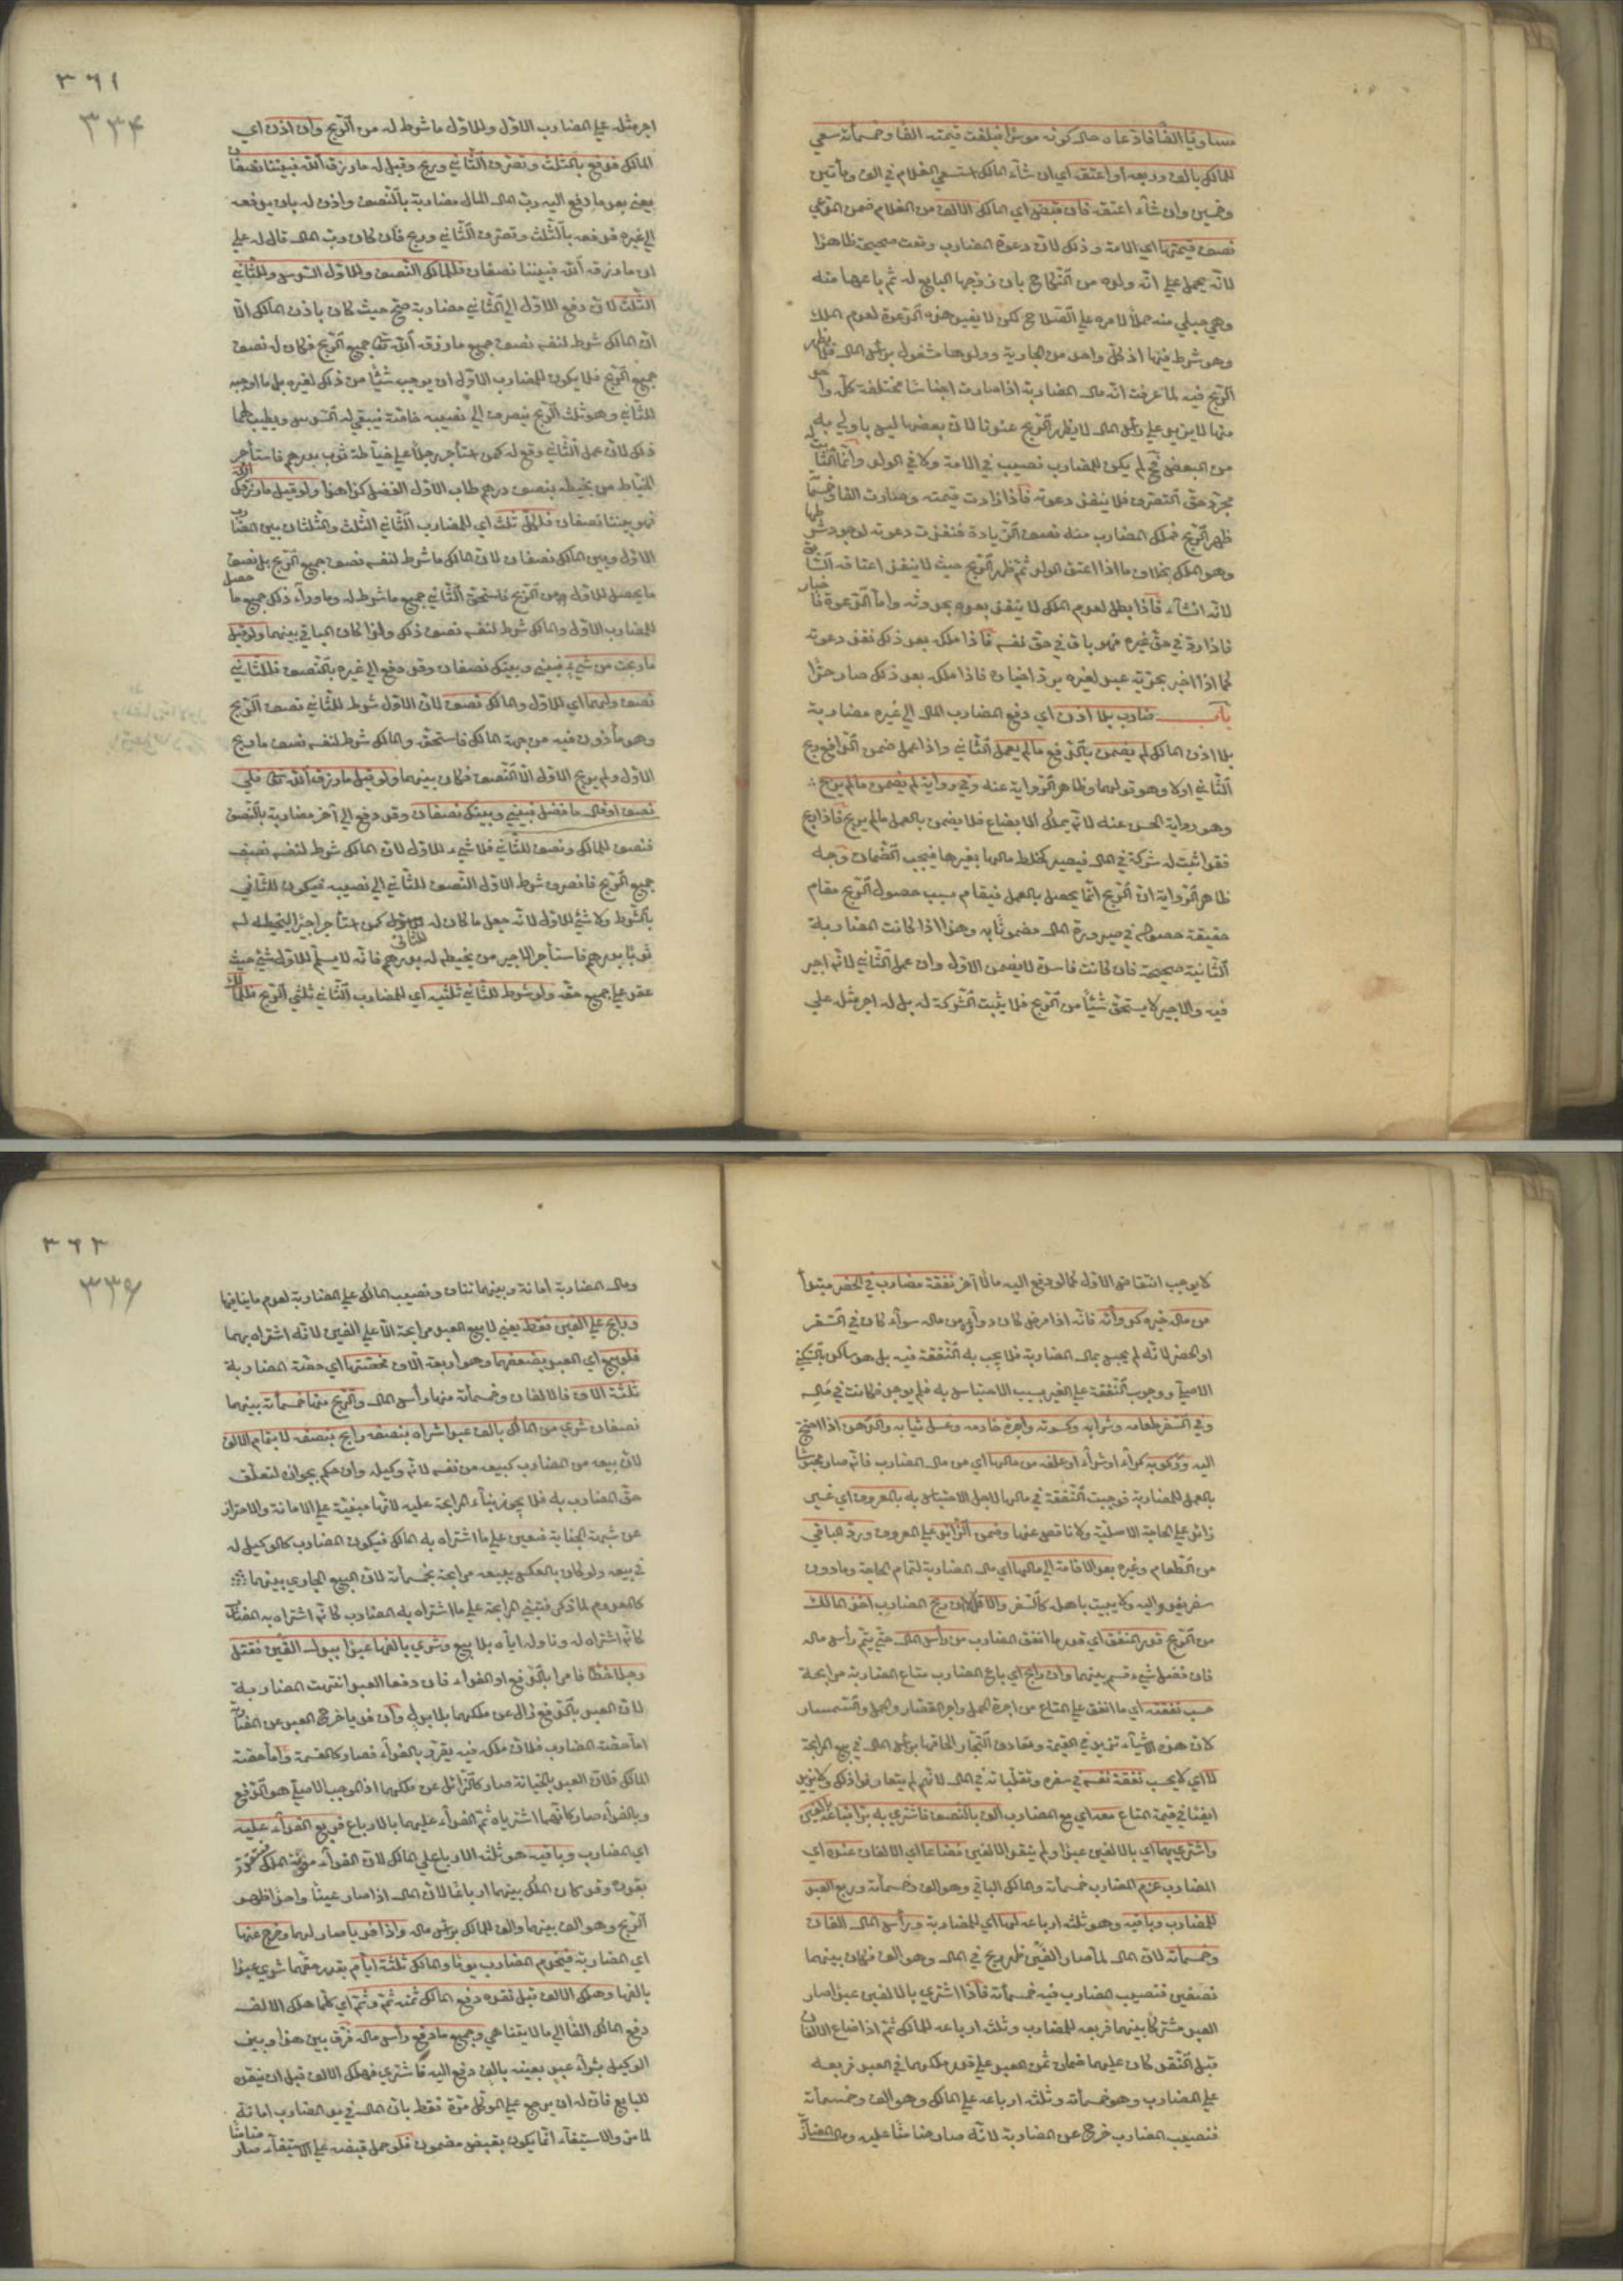 مساويا الفا فادعاه حال كونه موسرا فبلغت قيمته الفا وخمسمأته سعى
للمالك بألف وربعه أو اعتقه اي ان شاء المالك استسعى الغلام في الف ومأتين
وخمسين وان شاء اعتقه فان قبض اي المالك الالف من الغلام ضمن المدعي
نصف قيمتها اي الامة وذلك لان دعوة المضارب وقعت صحيحة ظاهرا
لانه يحمل على انه ولده من النكاح بان زوجها البايع له ثم باعها منه
وهي حبلى منه حملا لامره على الصلاح لكن لا ينفذ هذه الدعوة لعدم الملك
وهو شرط فيها اذ كل واحد من الجارية وولدها مشغول برأس المال فلا يظهر
الربح فيه لما عرفت ان مال المضاربة اذا صارت اجناسا مختلفة كل واحد
منها لا يزيد على رأس المال لا يظهر الربح عندنا لان بعضها ليس باولى به
من البعض فح لم يكن للمضارب نصيب في الامة ولا في الولد وانما الثابت له
مجرد حق التصرف فلا ينفذ دعوته فاذا زادت قيمته وصارت الفا وخمسمأة
ظهر الربح فملك المضارب منه نصف الزيادة فنفذت دعوته لوجود شرطها
وهو الملك بخلاف ما اذا اعتق الولد ثم ظهر الربح حيث لا ينفذ اعتاقه السابق
لانه انشاء فاذا بطل لعدم الملك لا ينفذ بعده بحدوثه واما الدعوة فاخبار
فاذا رد في حق غيره فهو باق في حق نفسه فاذا ملكه بعد ذلك نفذ دعوته
كما اذا اخبر بحرية عبد لغيره يرد اخباره فاذا ملكه بعد ذلك صار حرا
باب ضارب بلا اذن اي دفع المضارب المال الى غيره مضاربة
بلا اذن المالك لم يضمن بالدفع ما لم يعمل الثاني واذا عمل ضمن الدافع ربح
الثاني اولا وهو قولهما وظاهر الرواية عنه وفي رواية لم يضمن ما لم يربح
وهو رواية الحسن عنه لانه يملك الابضاع فلا يضمن بالعمل ما لم يربح فاذا ربح
فقد اثبت له شركة في المال فيصير كخلط مالها بغيرها فيجب الضمان وجه
ظاهر الرواية ان الربح انما يحصل بالعمل فيقام سبب حصول الربح مقام
حقيقة حصوله في صيرورة المال مضمونا به وهذا اذا كانت المضاربة
الثانية صحيحة فان كانت فاسدة لا يضمن الاول وان عمل الثاني لانه اجير
فيه والاجير لا يستحق شيئا من الربح فلا يثبت الشركة له بل له اجر مثل على
٣٦١
٣٣۴
اجر مثله على المضارب الاول وللاول ما شرط له من الربح وان اذن اي
المالك فدفع بالثلث وتصرف الثاني وربح وقيل له ما رزق الله فبيننا نصفان
يعني بعد ما دفع اليه رب المال المال مضاربة بالنصف واذن له بان يدفعه
الى غيره فدفعه بالثلث وتصرف الثاني وربح فان كان رب المال قال له على
ان ما رزق الله فبيننا نصفان فللمالك النصف وللاول السدس وللثاني
الثلث لان دفع الاول الى الثاني مضاربة صح حيث كان باذن المالك الا
ان المالك شرط لنفسه نصف جميع ما رزق الله تعا جميع الربح فكان له نصف
جميع الربح فلا يكون للمضارب الاول ان يوجب شيئا من ذلك لغيره بل ما اوجبه
للثاني وهو ثلث الربح ينصرف الى نصيبه خاصة فيبقى له السدس ويطيب لهما
ذلك لان عمل الثاني وقع له كمن استأجر رجلا على خياطة ثوب بدرهم فاستأجر
الخياط من يخيطه بنصف درهم طاب الاول الفضل كذا هذا ولو قيل ما رزقك الله
فهو بيننا نصفان فلكل ثلث اي للمضارب الثاني الثلث والثلثان بين المضارب
الاول وبين المالك نصفان لان المالك ما شرط لنفسه نصف جميع الربح بل نصف
ما يحصل للاول من الربح فاستحق الثاني جميع ما شرط له وما وراء ذلك جميع ما حصل
للمضارب الاول والمالك شرط لنفسه نصف ذلك ولذا كان الباقي بينهما ولو قيل
ما ربحت من شيء فبيني وبينك نصفان وقد دفع الى غيره بالنصف فللثاني
نصف ولهما اي للاول والمالك نصف لان الاول شرط للثاني نصف الربح
وهو مأذون فيه من جهة المالك فاستحقه والمالك شرط لنفسه نصف ما ربح
الاول ولم يربح الاول الا النصف فكان بينهما ولو قيل ما رزق الله تعا فلي
نصف او قال ما فضل فبيني وبينك نصفان وقد دفع الى آخر مضاربة بالنصف
فنصف للمالك ونصف للثاني فلا شيء للاول لان المالك شرط لنفسه نصف
جميع الربح فانصرف شرط الاول النصف للثاني الى نصيبه فيكون للثاني
بالشرط ولا شيء للاول لانه جعل ما كان له للثاني كمن استأجر اجيرا ليخيط له
ثوبا بدرهم فاستأجر الاجير من يخيطه له بدرهم فانه لا يسلم للاول شيء حيث
عقد على جميع حقه ولو شرط للثاني ثلثيه اي للمضارب الثاني ثلثي الربح فللمالك
لا يوجب انتقاض الاول كما لو دفع اليه مالا آخر نفقة مضارب في الحضر مبتدأ
من ماله خبره كدوائه فانه اذا مرض كان دواؤه من ماله سواء كان في السفر
او الحضر لانه لم يحبس بمال المضاربة فلا يجب به النفقة فيه بل هو ساكن بالسكنى
الاصلي ووجوب النفقة على الغير بسبب الاحتباس به فلم يوجد فكانت في ماله
وفي السفر طعامه وشرابه وكسوته واجرة خادمه وغسل ثيابه والدهن اذا احتج
اليه وركوبه كراء او شراء او علفه من مالها اي من مال المضارب فانه صار محبوسا
بالعمل للمضاربة فوجبت النفقة في مالها لاجل الاحتباس به بالمعروف اي غير
زائد على الحاجة الاصلية ولا ناقص عنها وضمن الزائد على المعروف ورد الباقي
من الطعام وغيره بعد الاقامة الى مالها اي مال المضاربة لتمام الحاجة وما دون
سفر يغدو اليه ولا يبيت باهله كالسفر والا فلا ان ربح المضارب اخذ المالك
من الربح قدر المنفق اي قدر ما انفق المضارب من رأس المال حتى يتم رأس ماله
فان فضل شيء قسم بينهما وان رابح اي باع المضارب متاع المضاربة مرابحة
حسب نفقته اي ما انفق على المتاع من اجرة الحمل واجر القصار والحمل والسمسار
لان هذه الاشياء تزيد في القيمة وتعارف التجار الحاقها برأس المال في بيع المرابحة
لا اي لا يحسب نفقة نفسه في سفره وتقلباته في المال لانهم لم يتعارفوا ذلك ولا يزيد
ايضا في قيمة المتاع معه اي مع المضارب الف بالنصف فاشترى به بزا فباعه بالفين
واشترى بهما اي بالالفين عبدا ولم ينقد الالفين فضاعا اي الالفان عنده اي
المضارب غرم المضارب خمسمأته والمالك الباقي وهو الف وخمسمأته وربع العبد
للمضارب وباقيه وهو ثلثه ارباعه لها اي للمضاربة ورأس المال الفان
وخمسمأته لان المال لما صار الفين ظهر ربح في المال وهو الف فكان بينهما
نصفين فنصيب المضارب فيه خمسمأته فاذا اشترى بالالفين عبدا صار
العبد مشتركا بينهما فربعه للمضارب وثلثه ارباعه للمالك ثم اذا ضاع الالفان
قبل النقد كان عليهما ضمان ثمن العبد على قدر ملكهما في العبد فربعه
على المضارب وهو خمسمأته وثلثه ارباعه على المالك وهو الف وخمسمأته
فنصيب المضارب خرج عن المضاربة لانه صار ضامنا عليه ومال المضاربة
٣٦٣
ومال المضاربة امانة وبينهما تناف ونصيب المالك على المضاربة لعدم ما ينافيها
ورابح على الفين فقط يعني لا يبيع العبد مرابحة الا على الفين لانه اشتراه بهما
فلو بيع اي العبد بضعفهما وهو اربعة الاف فحصتها اي حصة المضاربة
ثلثة الاف فالالفان وخمسمأته منها رأس المال والربح منها خمسمأته بينهما
نصفان شرى من المالك بالف عبدا شراه بنصفه رابح بنصفه لا بتمام الالف
لان بيعه من المضارب كبيعه من نفسه لانه وكيله وان حكم بجوازه لتعلق
حق المضارب به فلا يجوز بناء المرابحة عليه لانها مبنية على الامانة والاحتراز
عن شبهة الخيانة فتعين على ما اشتراه به المالك فيكون المضارب كالوكيل له
في بيعه ولو كان بالعكس يبيعه مرابحة بخمسمأته لان البيع الجاري بينهما
كالمعدوم لما ذكر فتبنى المرابحة على ما اشتراه به المضارب كانه اشتراه به المضارب
كانه اشتراه له وناوله اياه بلا بيع وشرى بالفها عبدا يبدل الفين فقتل
رجلا خطأ فامرا بالدفع او الفداء فان دفعا العبد انتهت المضاربة
لان العبد بالدفع زال عن ملكهما بلا بدل وان فديا خرج العبد عن المضاربة
اما حصة المضارب فلان ملكه فيه يتقرر بالفداء فصار كالقسمة واما حصة
المالك فلان العبد بالجناية صار كالزائل عن ملكهما اذ الموجب الاصلي هو الدفع
وبالفداء صار كانهما اشترياه ثم الفداء عليهما بالارباع فربع الفداء عليه
اي المضارب وباقيه هو ثلثه الارباع على المالك لان الفداء مؤنة الملك فيتقدر
بقدره وقد كان الملك بينهما ارباعا لان المال اذا صار عينا واحدا ظهر
الربح وهو الف بينهما والف للمالك برأس ماله واذا فديا صار لهما وخرج عنها
اي المضاربة فيخدم المضارب يوما والمالك ثلثة ايام بقدر حقهما شرى عبدا
بالفها وهلك الالف قبل نقده دفع المالك ثمنه ثم وثم اي كلما هلك الالف
دفع المالك الفا الى ما لا يتناهى وجميع ما دفع رأس ماله فرق بين هذا وبين
الوكيل بشراء عبد بعينه بالف دفع اليه فاشترى فهلك الالف قبل ان ينقده
للبايع فان له ان يرجع على الموكل مرة فقط بان المال في يد المضارب امانة
لما مر والاستيفاء انما يكون بقبض مضمون فلو حمل قبضه على الاستيفاء صار ضامنا